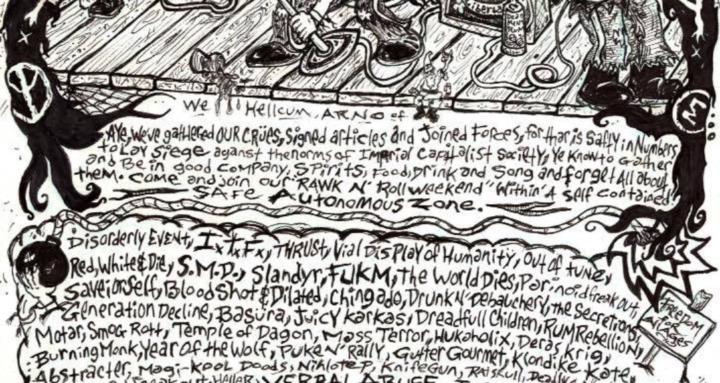 We Hellcum, ARNO of
Aye, We've gathered OUR CRÜES, signed articles and Joined Forces, for thar is Safty in Numbers
to Lay Siege against the norms of Imperial Capitalist Society, Ye Know to Gather
and Be in good Company, Spirits, Food, Drink and Song and forget All about
them. Come and join our "RAWK N' Roll weekend" Within A Self Contained
SAFE Autonomous Zone.
Disorderly EVENT, I.T.F., THRUST, Vial Display of Humanity, Out of tune,
Red, White & Die, S.M.D., Slandyr, FUKM, The World Dies, Paranoid freak out,
Save ior Self, Blood Shot & Dilated, Chingado, Drunk N' Debauchery, the Secretions,
Generation Decline, Basura, Juicy Karkas, Dreadfull Children, RUM Rebellion,
Motar, Smog Rott, Temple of Dagon, Mass Terror, Hukaholix, Deras Krig,
Burning Monk, Year of the Wolf, Puke N' Rally, Gutter Gourmet, Klondike Kate,
Abstracter, Magi-Kool Doods, Knifegun, Ratskull,
VERBAL ABUSE
Freedom
All